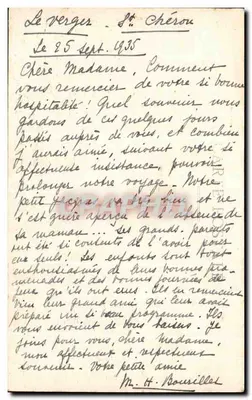 Le verger - St Chéron
Le 25 Sept. 1935
Chère Madame, Comment
vous remercier de votre si bonne
hospitalité! Quel souvenir nous
gardons de ces quelques jours
passés auprès de vous, et combien
j'aurais aimé, suivant votre si
affectueuse insistance, pouvoir
prolonger notre voyage. Notre
petit va bien et ne
s'est guère aperçu de l'absence de
sa maman... Les grands-parents
ont été si contents de l'avoir pour
eux seuls! Les enfants sont tous
enthousiasmés de leurs bonnes pro-
menades et des bonnes journées de
jeux qu'ils ont eues. Ils en remercient
bien leur grand ami qui leur avait
préparé un si bon programme. Ils
vous envoient de bons baisers. Je
joins pour vous, chère Madame,
mon affectueux et respectueux
souvenir. Votre petite amie
M. H. Bourillet